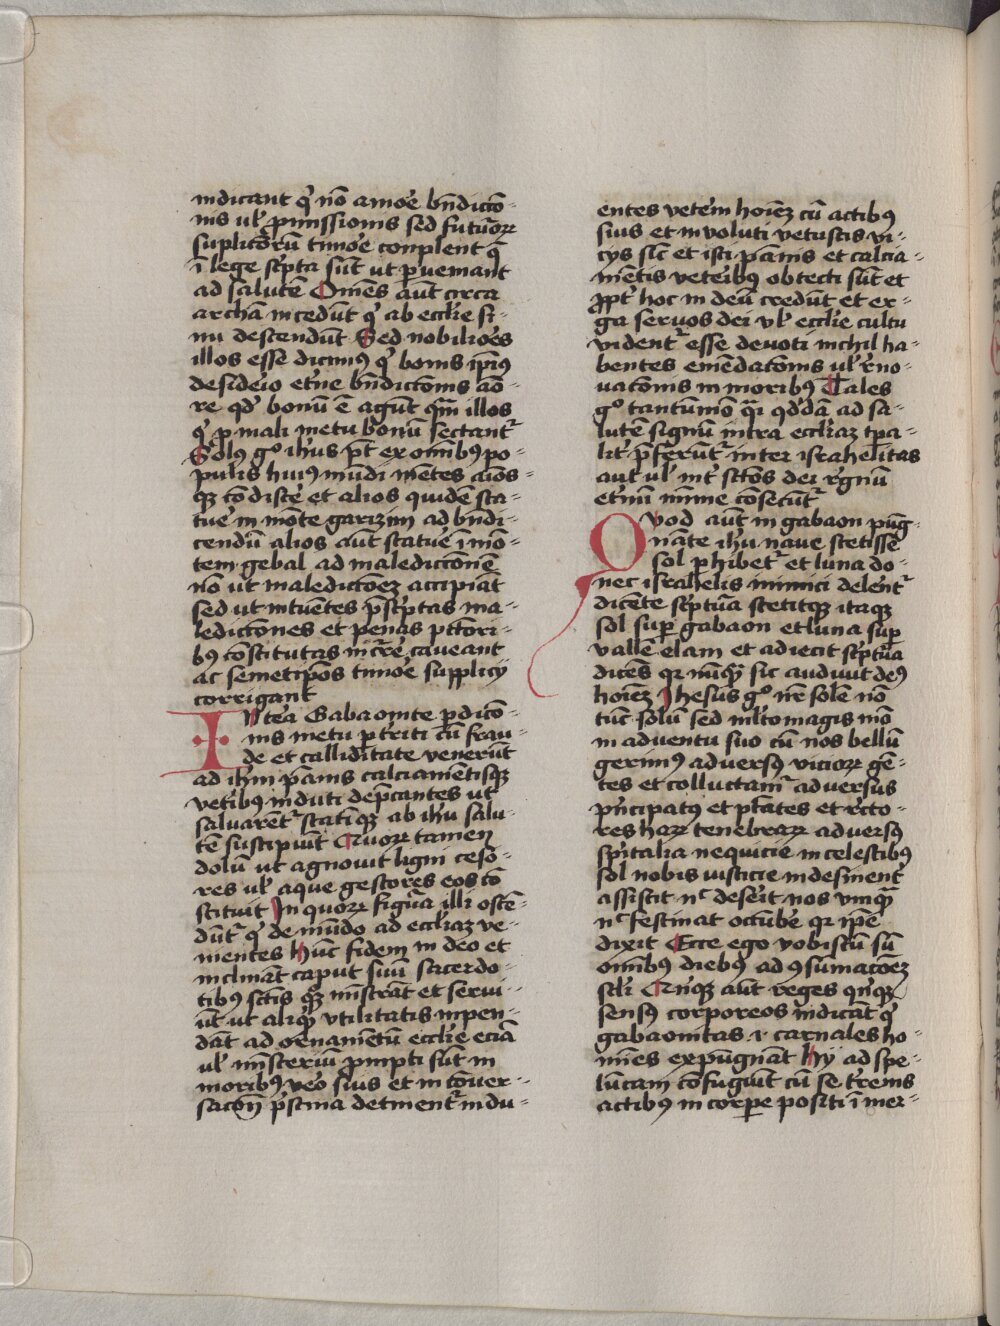 indicant q' nō amor̄e bn̄dictō-
nis ul' p̄missionis sed futūorꝝ
suplitiorū timor̄e conplent q̄
ī lege sc̄pta sūt ut p̄ueniant
ad salutē Om̄es aūt circa
archā incedūt q' ab eccl'ie si-
nu descendūt Sed nobiliōes
illos esse dicimꝰ q' bonis ip̄iꝰ
desideīo et'ne bn̄dictōnis aō-
re qd' bonū ē agūt qm̄ illos
q' p mali metu bonū sectant'
Solꝰ g° ih̄us pt̄ ex om̄ibꝰ po-
pulis huiꝰ mūdi mētes aīos-
qꝫ cōdisc'e et alios quidē sta-
tue' in mōte garizim ad bn̄di-
cendū alios aūt statue' ī mō-
tem gebal ad maledictōnē
nō ut maledictōeꝫ accipiāt
sed ut intuētes p̄sc̄ptas ma-
ledictōnes et penas pctōri-
bꝰ cōstitutas in cr̄e caueant
ac semetip̄os timor̄e supplicij
corrigant
Int'ea Gabaonite p̄dictō-
nis metu p̄triti cū frau-
de et calliditate venerūt
ad ih̄m pānis calciamētisqꝫ
vet'ibꝰ induti dep̄cantes ut
saluarēt' statīqꝫ ab ih̄u salu-
tē suscipiūt Quorꝝ tamen
dolū ut agnouit ligni cesō-
res ul' aque gestores eos cō-
stituit In quorꝝ figūa illi ostē-
dūt' q' de mūdo ad eccl'iaꝫ ve-
nientes hūc fidem in deo et
inclināt caput suū sacerdo-
tibꝰ sctīs qꝫ mīstrāt et serui-
ūt ut aliq̄ vtilitatis inpen-
dāt ad ornamētū eccl'ie eciā
ul' mīsteriū p̄mpti sūt in
moribꝰ v'o suis et in cōuer-
sacōn p̄stina detinent' indu-
entes vet'em hoīeꝫ cū actibꝰ
suis et in voluti vetustis vi-
cijs sic̄ et isti pānis et calcia-
mētis vet'eibꝰ obtecti sūt et
ꝓpt' hoc in deū credūt et er-
ga seruos dei ul' eccl'ie cultū
vident' esse deuoti nichil ha-
bentes emēdatōnis ul' r'no-
uatōnis in moribꝰ Tales
g° tantūmō q̄i qd'dā ad sa-
lutē signū intra eccl'iaꝫ tpa-
lit' p̄ferūt' inter israhelitas
aut ul' int' sctōs dei r'gnū
et'nū mīme cōsecūt'
Quod aūt in gabaon pūg-
nāte ih̄u naue stetisse
sol p̄hibet' et luna do-
nec israhelis inimici delent'
dicēte sc̄ptūa stetitqꝫ itaqꝫ
sol sup̄ gabaon et luna sup̄
vallē elam et adiecit sc̄ptūa
dicēs qr nūq̄ sic audiuit deꝰ
hoīeꝫ Ihesus g° nr̄ solē nō
tūc solū sed ml'tomagis mō
in aduentu suo cū nos bellū
gerimꝰ aduersꝰ viciorꝝ gē-
tes et colluctam̄' aduersus
p'ncipatꝰ et p̄tātes et r'cto-
res harꝝ tenebrarꝝ aduersꝰ
sp̄italia nequicie in celestibꝰ
sol nobis iusticie indesinent'
assistit n° deserit nos vnq̄
n° festinat occūbe' qr ip̄e
dixit Ecce ego vobiscū sū
om̄ibꝰ diebꝰ ad ꝯsumacōeꝫ
scl'i Qn̄qꝫ aūt reges qn̄qꝫ
sensꝰ corporeos indicāt q'
gabaonitas .i. carnales ho-
mīes expūgnāt hij ad spe-
lūcam cōfugiūt cū se t'renis
actibꝰ in corp̄e positi ī mer-